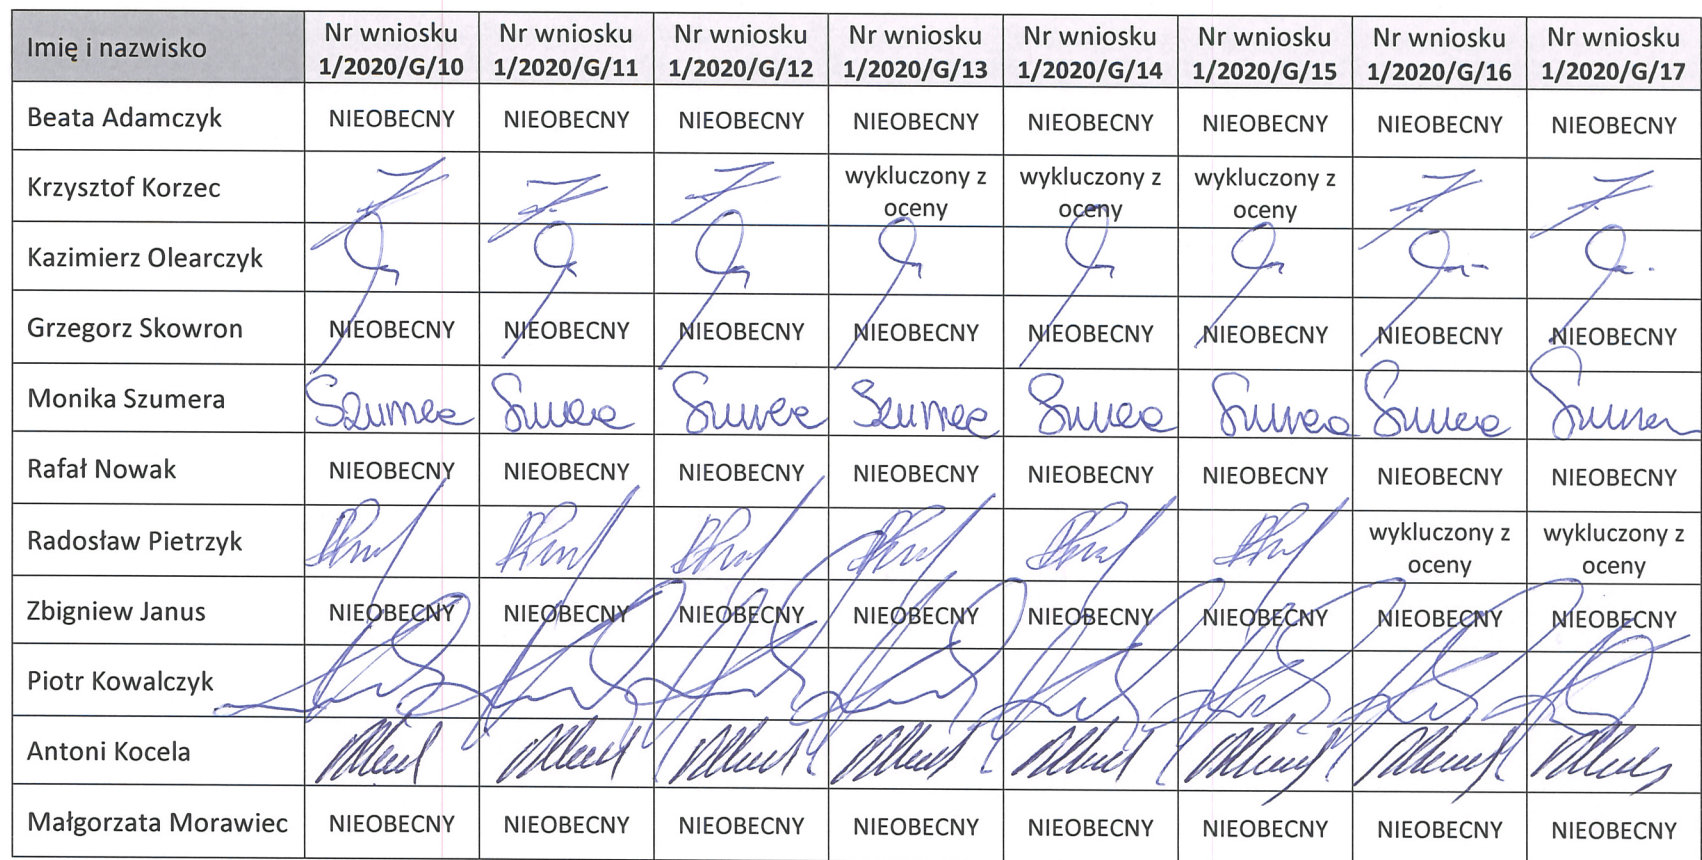 Imię i nazwisko Nr wniosku 1/2020/G/10 Nr wniosku 1/2020/G/11 Nr wniosku 1/2020/G/12 Nr wniosku 1/2020/G/13 Nr wniosku 1/2020/G/14 Nr wniosku 1/2020/G/15 Nr wniosku 1/2020/G/16 Nr wniosku 1/2020/G/17
Beata Adamczyk NIEOBECNY NIEOBECNY NIEOBECNY NIEOBECNY NIEOBECNY NIEOBECNY NIEOBECNY NIEOBECNY
Krzysztof Korzec wykluczony z oceny wykluczony z oceny wykluczony z oceny
Kazimierz Olearczyk
Grzegorz Skowron NIEOBECNY NIEOBECNY NIEOBECNY NIEOBECNY NIEOBECNY NIEOBECNY NIEOBECNY NIEOBECNY
Monika Szumera
Rafał Nowak NIEOBECNY NIEOBECNY NIEOBECNY NIEOBECNY NIEOBECNY NIEOBECNY NIEOBECNY NIEOBECNY
Radosław Pietrzyk wykluczony z oceny wykluczony z oceny
Zbigniew Janus NIEOBECNY NIEOBECNY NIEOBECNY NIEOBECNY NIEOBECNY NIEOBECNY NIEOBECNY NIEOBECNY
Piotr Kowalczyk
Antoni Kocela
Małgorzata Morawiec NIEOBECNY NIEOBECNY NIEOBECNY NIEOBECNY NIEOBECNY NIEOBECNY NIEOBECNY NIEOBECNY